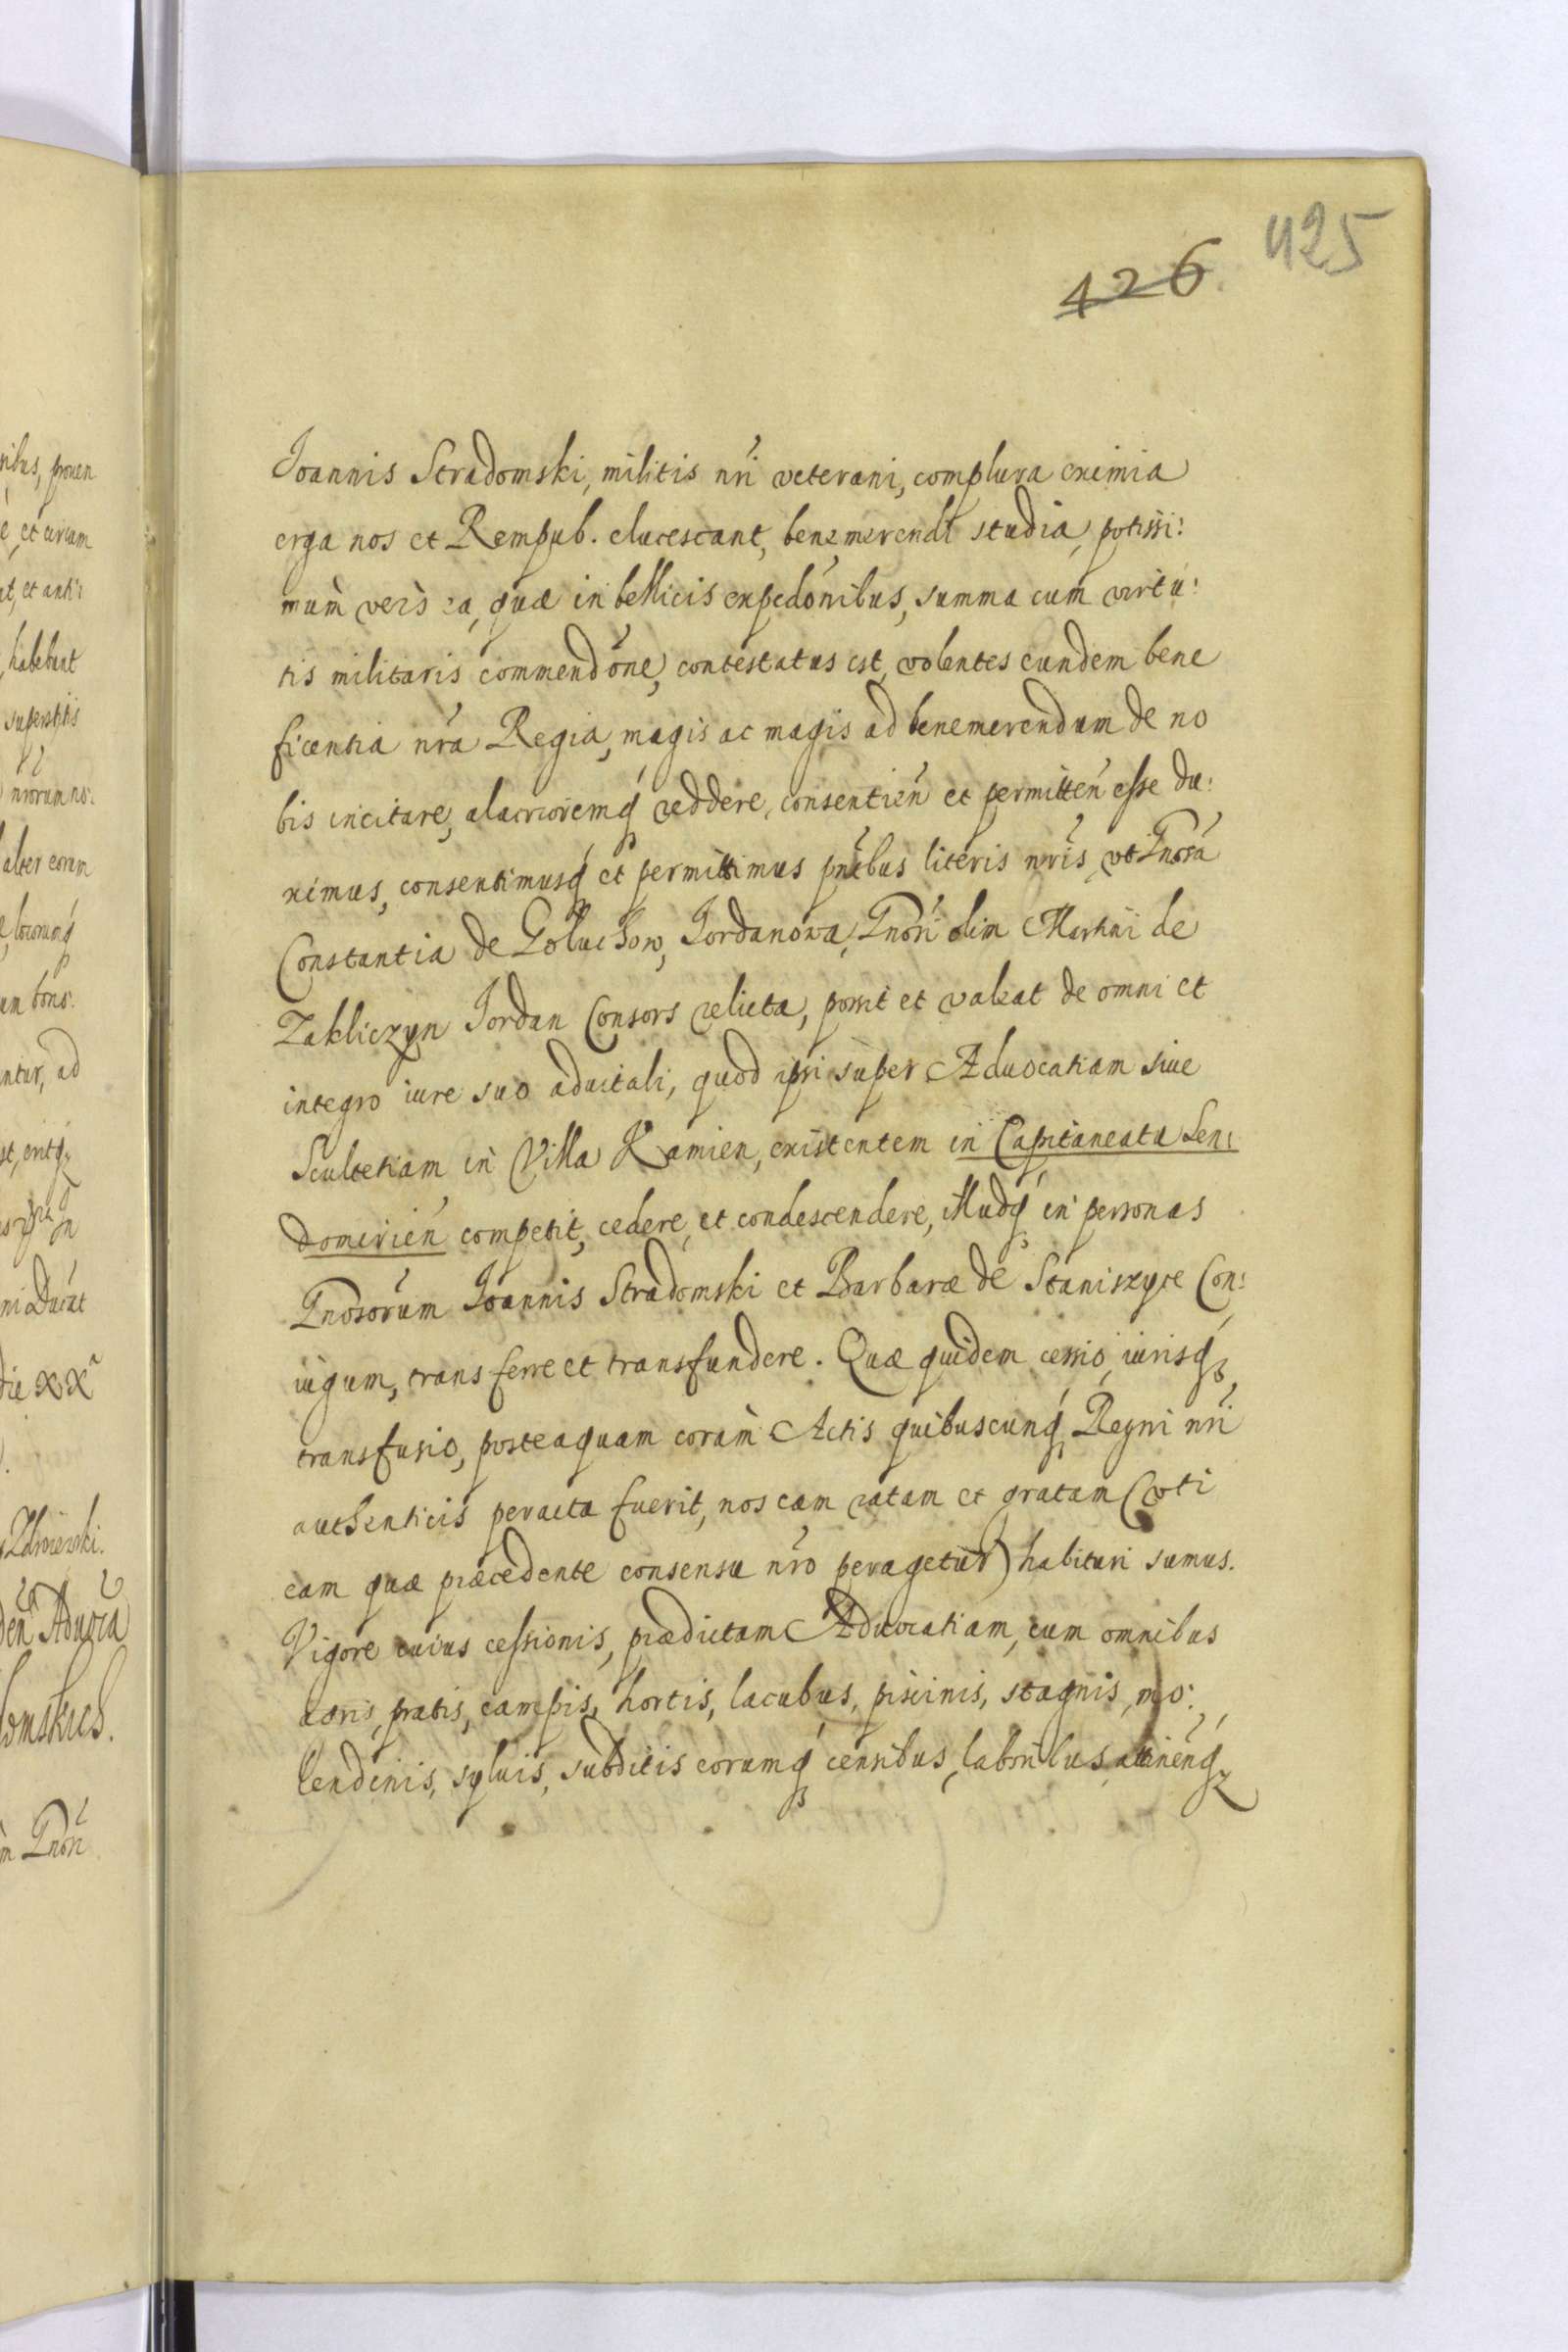 425
426.
Ioannis Stradomski, militis nr̃i veterani, complura eximia
erga nos et Rempub. elucescant, benemerendi studia, potissi:
mum̀ verò ea, quæ in bellicis expedõnibus, summa cum virtu:
tis militaris commendõne, contestatus est, volentes eundem bene
ficentia nr̃a Regia, magis ac magis ad benemerendum de no
bis incitare, alacrioremq́ꝫ reddere, consentien̄ et permitten̄ esse du:
ximus, consentimusq́ꝫ et permittimus pñtibus literis nr̃is, vt Gnosa
Constantia de Goluchow, Iordanowa, Gnosi olim Martini de
Zakliczyn Iordan Consors relicta, possit et valeat de omni et
integro iure suo aduitali, quod ipsi super Aduocatiam siue
Scultetiam in Villa Kamien, existentem in Capitaneatu Sen:
domirien̄ competit, cedere, et condescendere, illudq́ꝫ in personas
Gnosorum Ioannis Stradomski et Barbaræ de Staniszyce Con:
iugum, transferre et transfundere. Quæ quidem cessio, iurisq́ꝫ
transfusio, posteaquam coram̀ Actis quibuscunq́ꝫ Regni nr̃i
authenticis peracta fuerit, nos eam ratam et gratam (vti
eam quæ præcedente consensu nr̃o peragetur) habituri sumus.
Vigore cuius cessionis, prædictam Aduocatiam, cum omnibus
agris, pratis, campis, hortis, lacubus, piscinis, stagnis, mo:
lendinis, syluis, subditis eorumq́ꝫ censibus, laboribus, attinen̄q́ꝫ